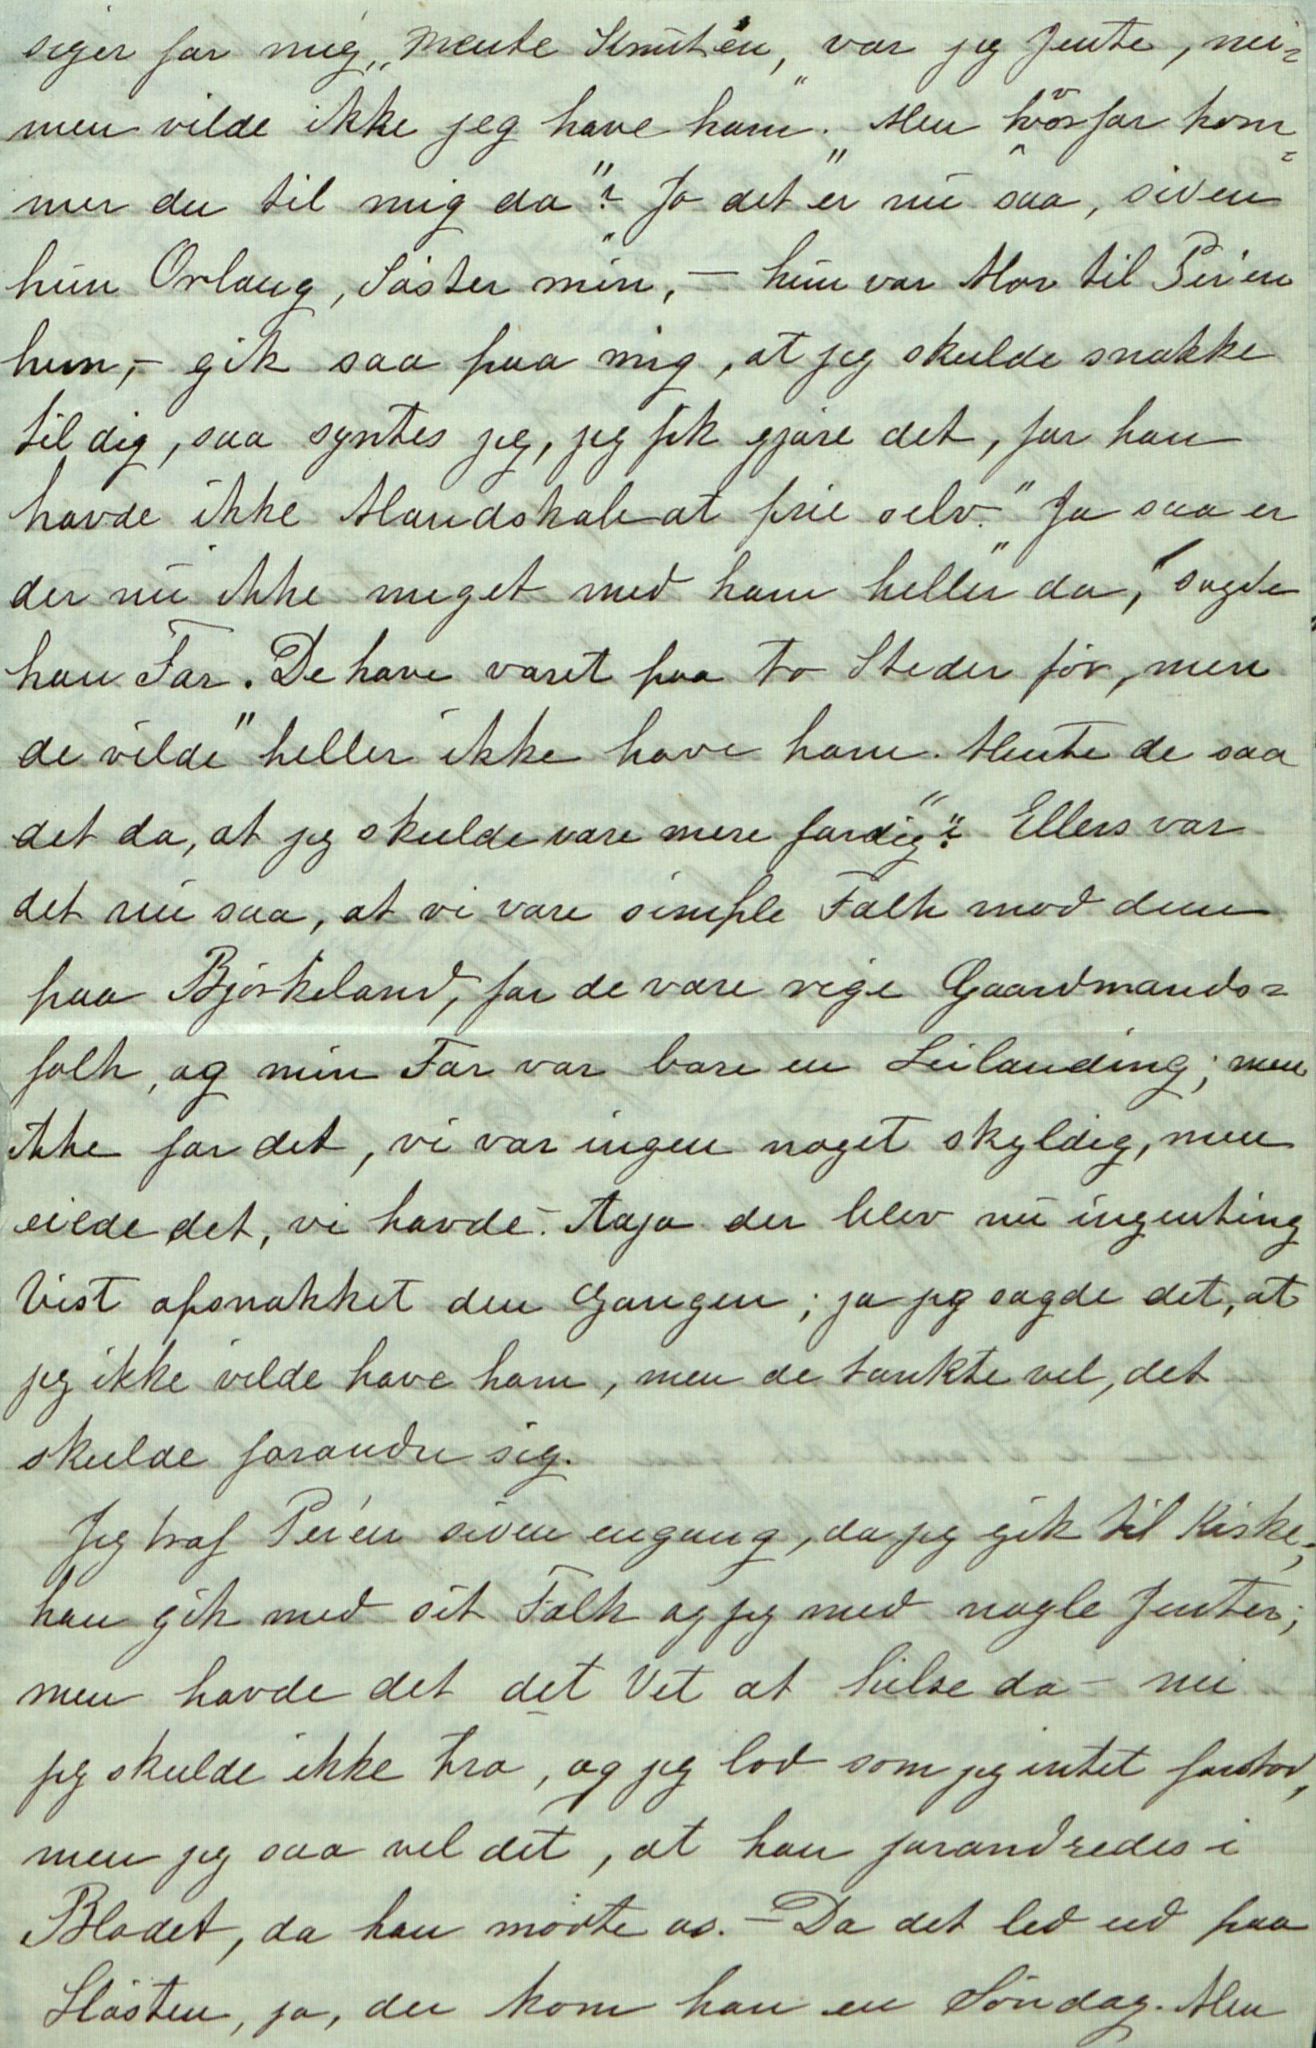 siger for mig," mente Knut'en, "var jeg Jente, nei-
men vilde ikke jeg have ham". "Men hvorfor kom-
mer du til mig da"? "Jo det er nu saa, siden
hun Orlaug, Söster min, — hun var Mor til Per'en
hun, — gik saa paa mig, at jeg skulde snakke
til dig, saa syntes jeg, jeg fik gjøre det, for han
havde ikke Mandskab at frie selv." "Ja saa er
der nu ikke meget med ham heller da," sagde
han Far. De have været paa to Steder för, men
de vilde" heller ikke have ham. Mente de saa
det da, at jeg skulde være mere færdig"? Ellers var
det nu saa, at vi vare simple Folk mod dem
paa Björkeland, for de vare rige Gaardmands-
folk, og min Far var bare en Leilænding; men
ikke for det, vi var ingen noget skyldig, men
eiede det, vi havde. — Aaja der blev nu ingenting
Vist afsnakket den Gangen; ja jeg sagde det, at
jeg ikke vilde have ham, men de tænkte vel, det
skulde forandre sig.
Jeg traf Per'en siden engang, da jeg gik til Kirke;
han gik med sit Folk og jeg med nogle Jenter;
men havde det det Vet at hilse da — nei
jeg skulde ikke tro, og jeg lod som jeg intet forstod,
men jeg saa vel det, at han forandredes i
Blodet, da han mödte os. — Da det led ud paa
Hösten, ja, der kom han en Söndag. Men